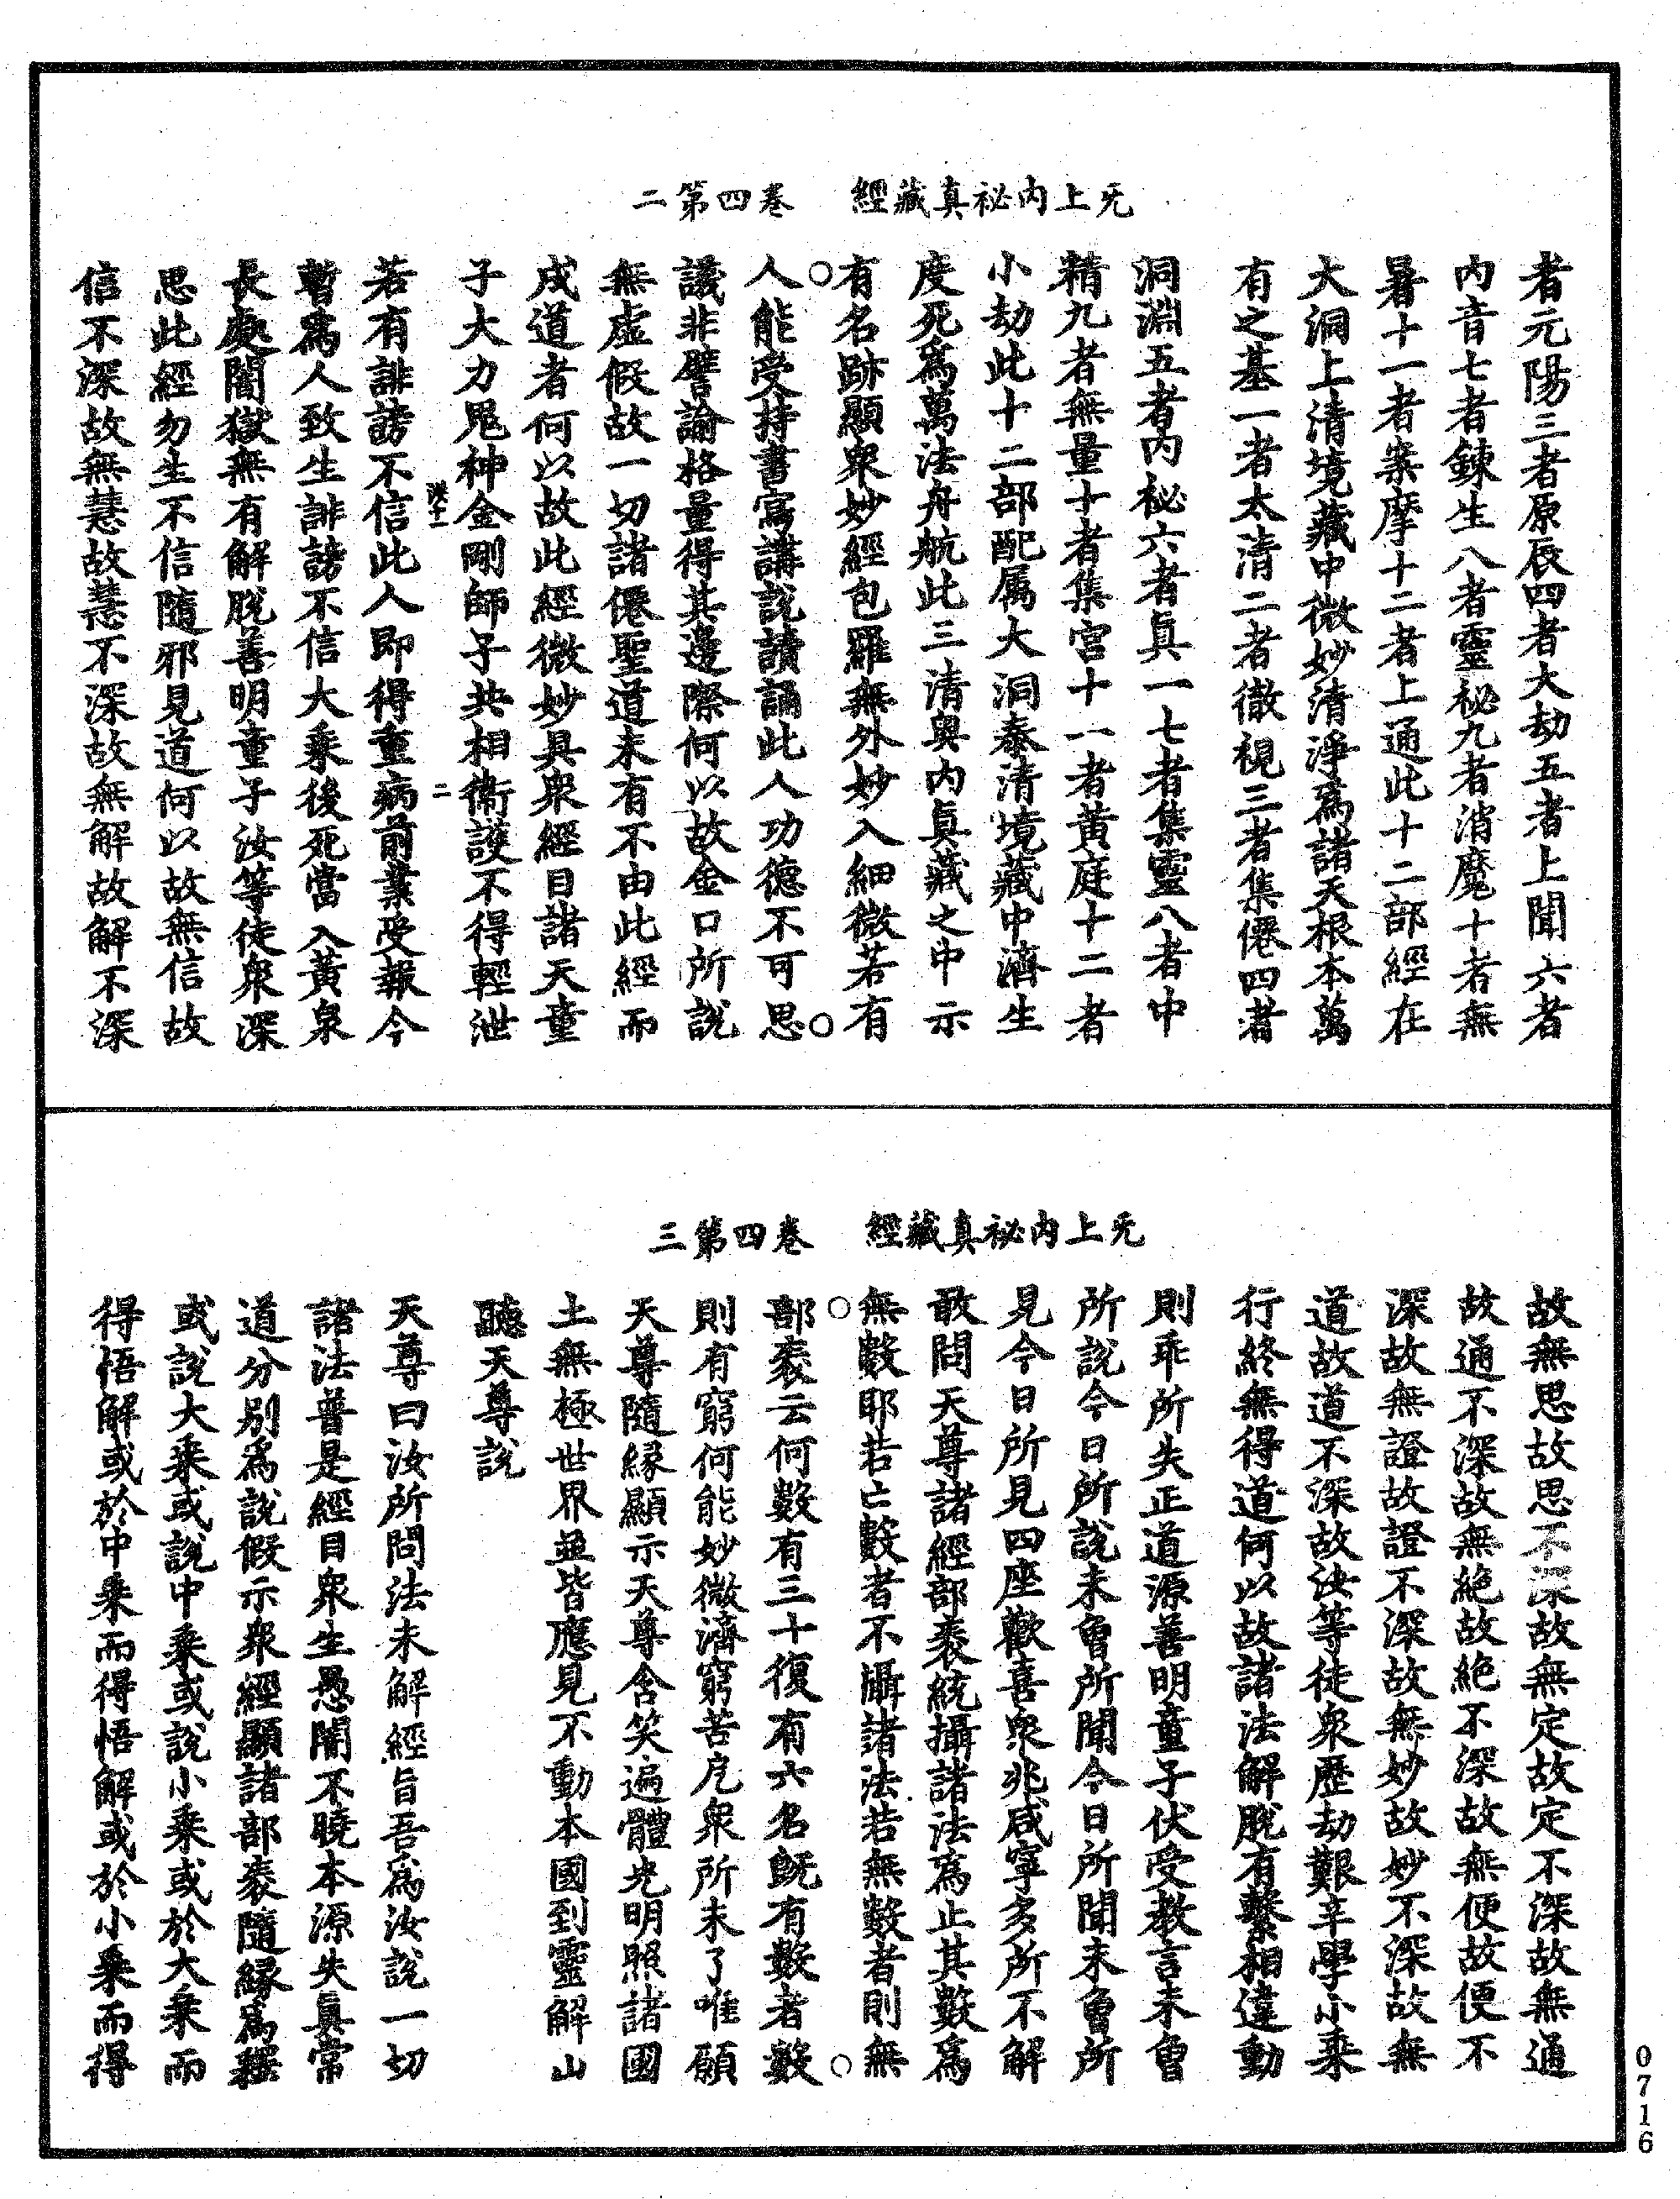 无上內祕真藏經　卷四第二
者元陽三者原辰四者大劫五者上聞六者
內音七者鍊生八者靈祕九者消魔十者無
暑十一者案摩十二者上通此十二部經在
大洞上清境藏中微妙清淨爲諸天根本萬
有之基一者太清二者徹視三者集僊四者
洞淵五者內祕六者真一七者集靈八者中
精九者無量十者集宮十一者黃庭十二者
小劫此十二部配属大洞泰清境藏中濟生
度死爲萬法舟航此三清奧內真藏之中示
有名跡顯衆妙經包羅無外妙入細微若有
○人能受持書寫講說讀誦此人功德不可思○
議非譬諭格量得其邊際何以故金口所說
無虛假故一切諸僊聖道未有不由此經而
成道者何以故此經微妙具衆經目諸天童
子大力鬼神金剛師子共相衞護不得輕泄
二
若有誹謗不信此人即得重病前業受報今
暫爲人致生誹謗不信大乘後死當入黃泉
長處闇獄無有解脫善明童子汝等徒衆深
思此經勿生不信隨邪見道何以故無信故
信不深故無慧故慧不深故無解故解不深
无上內祕真藏經　卷四第三
故無思故思不深故無定故定不深故無通
故通不深故無絕故絕不深故無便故便不
深故無證故證不深故無妙故妙不深故無
道故道不深故汝等徒衆歷劫艱辛學小乘
行終無得道何以故諸法解脫有繫相違動
則乖所失正道源善明童子伏受教言未曾
所說今日所說未曾所聞今日所聞未曾所
見今日所見四座歡喜衆兆咸寧多所不解
敢問天尊諸經部袠統攝諸法爲止其數爲
無數耶若亡數者不攝諸法若無數者則無
○部袠云何數有三十復有六名旣有數者數○
則有窮何能妙微濟窮苦厄衆所未了唯願
天尊隨緣顯示天尊含笑遍體光明照諸國
土無極世界並皆應見不動本國到靈解山
聽天尊說
天尊曰汝所問法未解經旨吾爲汝說一切
諸法普是經目衆生愚闇不曉本源失真常
道分別爲說假示衆經顯諸部袠隨緣爲釋
或說大乘或說中乘或說小乘或於大乘而
得悟解或於中乘而得悟解或於小乘而得
0716